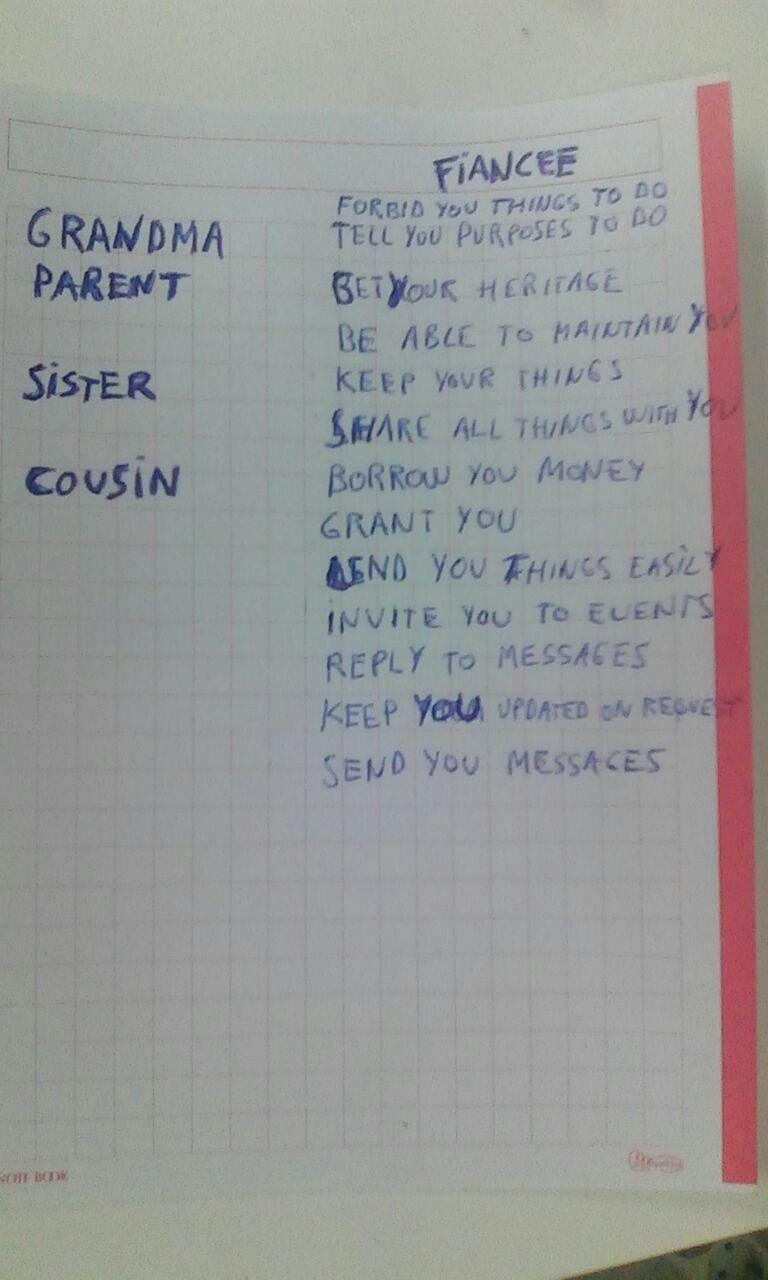 FiANCEE
FORBID YOU THINGS TO DO
GRANDMA TELL YOU PURPOSES TO DO
PARENT BET YOUR HERITAGE
BE ABLE TO MAINTAIN YOU
SiSTER KEEP YOUR THINGS
SHARE ALL THINGS WITH YOU
COUSiN BORROW YOU MONEY
GRANT YOU
LEND YOU THINGS EASiLY
iNVITE YOU TO EVENTS
REPLY TO MESSAGES
KEEP YOU UPDATED ON REQUEST
SEND YOU MESSAGES
NOTE BOOK